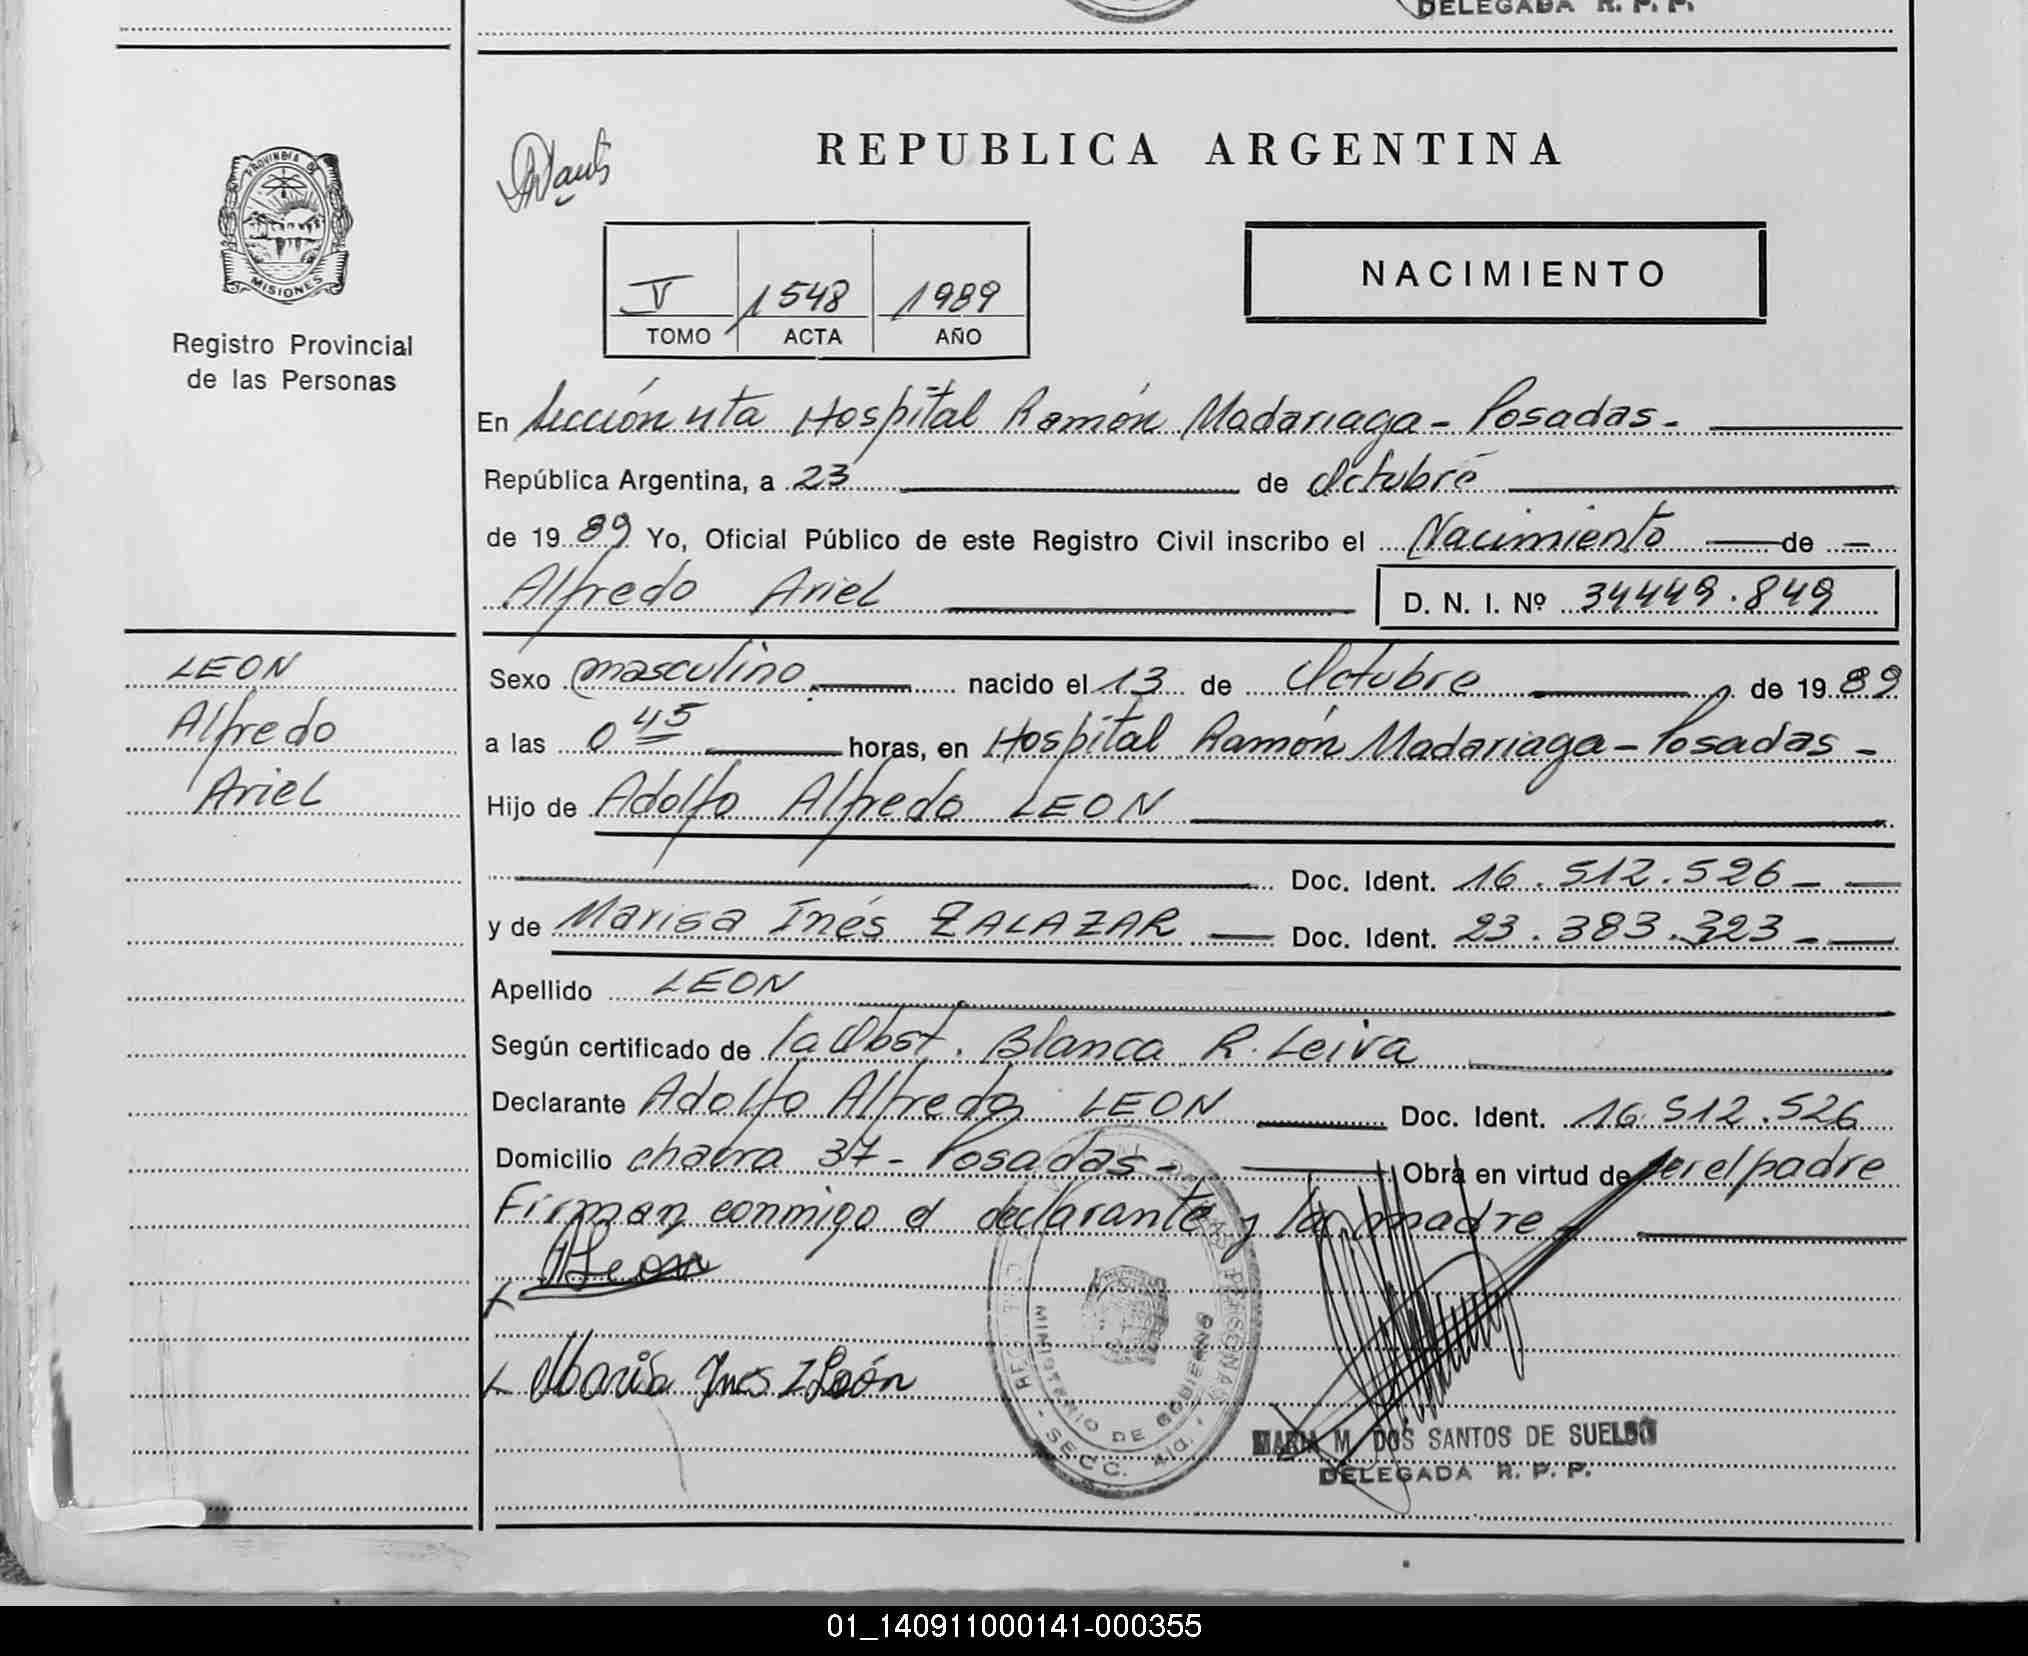 DELEGADA R. P. P.
PROVINCIA DE
MISIONES
Registro Provincial
de las Personas
REPUBLICA ARGENTINA
NACIMIENTO
V 1548 1989
TOMO ACTA AÑO
En Sección 4ta Hospital Ramón Madariaga - Posadas -
República Argentina, a 23 de Octubre
de 1989 Yo, Oficial Público de este Registro Civil inscribo el Nacimiento de
Alfredo Ariel D. N. I. Nº 34449.849
LEON
Alfredo
Ariel
Sexo masculino nacido el 13 de Octubre de 1989
a las 0 45 horas, en Hospital Ramón Madariaga - Posadas -
Hijo de Adolfo Alfredo LEON
Doc. Ident. 16.512.526
y de Marisa Inés ZALAZAR Doc. Ident. 23.383.323
Apellido LEON
Según certificado de la Obst. Blanca R. Leiva
Declarante Adolfo Alfredo LEON Doc. Ident. 16.512.526
Domicilio chacra 37 - Posadas - Obra en virtud de ser el padre
Firman conmigo el declarante y la madre
x Leon
x Ines Z León
MINISTERIO DE GOBIERNO
SECC. 4ta.
MARIA M. DOS SANTOS DE SUELDO
DELEGADA R. P. P.
01_140911000141-000355